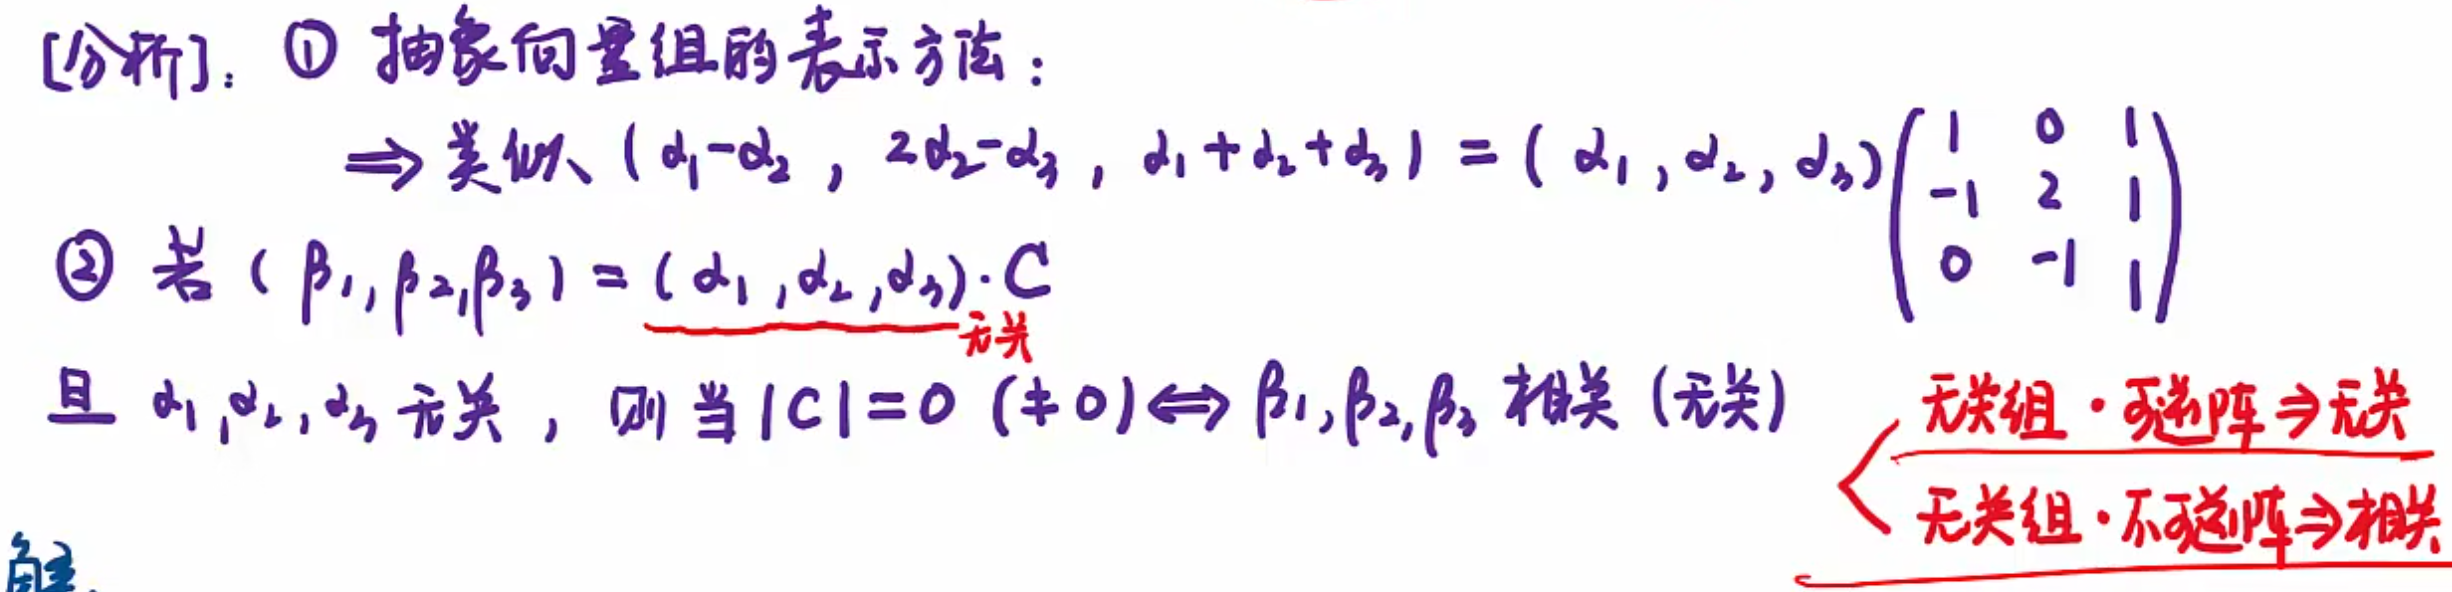 [分析]: ① 抽象向量组的表示方法:
⇒ 类似 (α₁-α₂, 2α₂-α₃, α₁+α₂+α₃) = (α₁, α₂, α₃) ( 1 0 1
-1 2 1
0 -1 1 )
② 若 (β₁, β₂, β₃) = (α₁, α₂, α₃)·C
无关
且 α₁, α₂, α₃ 无关, 则当 |C|=0 (≠0) ⇔ β₁, β₂, β₃ 相关 (无关)
无关组·可逆阵⇒无关
无关组·不可逆阵⇒相关
解.